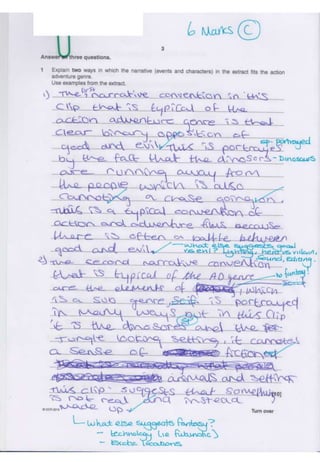 6 Marks (C)
U
3
Answer all three questions.
1 Explain two ways in which the narrative (events and characters) in the extract fits the action
adventure genre.
Use examples from the extract.
1) The first narrative convention in this
clip that is typical of the
action adventure genre is the
clear binary opposition of
good and evil. This is portrayes
sp. portrayed
by the fact that the dinosers - Dinosaurs
are running away from
the people which is also
connoting a chase going on.
This is a typical convention of
action and adventure films because
there is often a battle between
good and evil.
what else suggests good
vs evil?
2) The second narrative convention
that is typical of the AD genre
are the elements of which
is a sub genre, is portrayed
in many ways but in this clip
it is the dinosores and the
Jungle looking setting, it connotes
a sense of fiction
animals and setting
this clip suggests that something
is not real and instead
made up
Turn over
What else suggests fantasy?
- technology (ie futuristic)
- Exotic locations